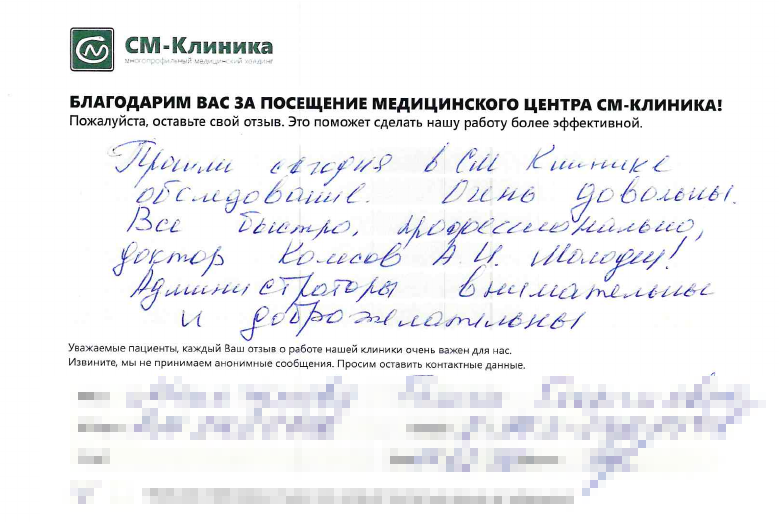 СМ-Клиника
многопрофильный медицинский холдинг
БЛАГОДАРИМ ВАС ЗА ПОСЕЩЕНИЕ МЕДИЦИНСКОГО ЦЕНТРА СМ-КЛИНИКА!
Пожалуйста, оставьте свой отзыв. Это поможет сделать нашу работу более эффективной.
Прошли сегодня в СМ Клинике
обследование. Очень довольны.
Все быстро, профессионально,
доктор Колесов А.И. Молодец!
Администраторы внимательны
и доброжелательны
Уважаемые пациенты, каждый Ваш отзыв о работе нашей клиники очень важен для нас.
Извините, мы не принимаем анонимные сообщения. Просим оставить контактные данные.